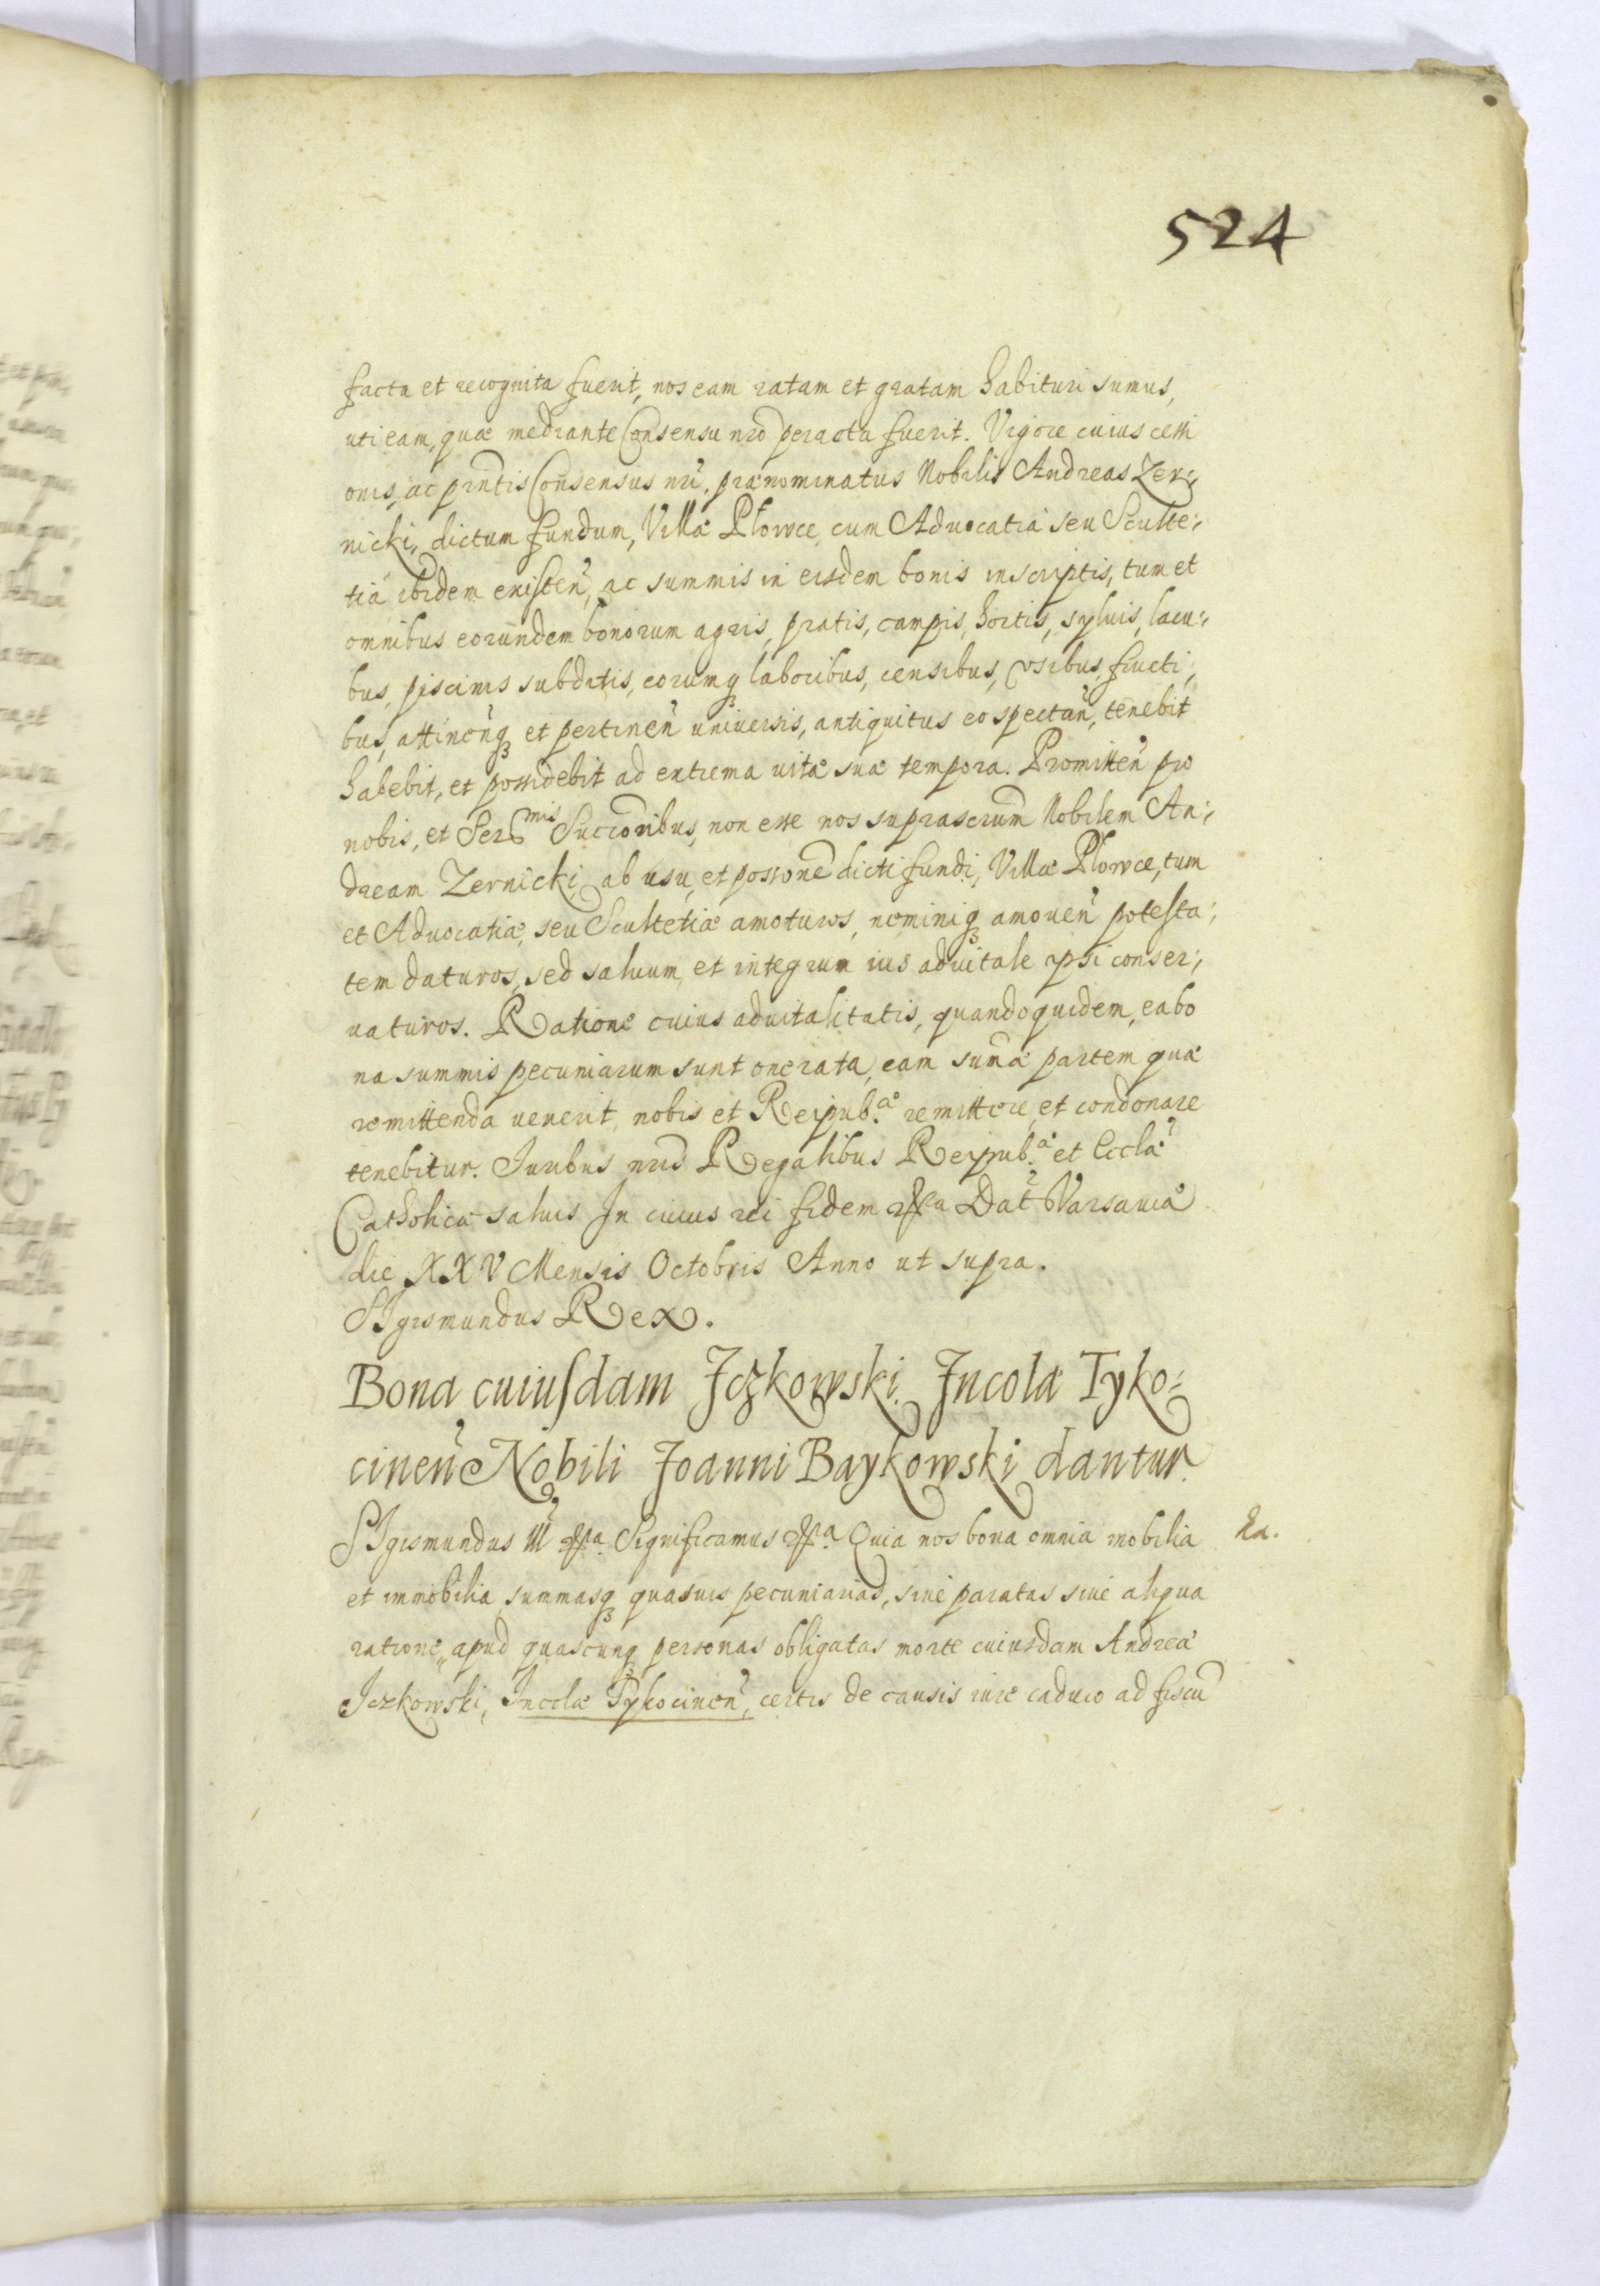 524
facta et recognita fuerit, nos eam ratam et gratam habituri sumus,
uti eam, quæ mediante Consensu nr̃o peracta fuerit. Vigore cuius cessi
onis, ac pr̃ntis Consensus nr̃i, prænominatus Nobilis Andreas Zer-
nicki, dictum fundum, Villæ Płowce, cum Aduocatia seu Sculte-
tia ibidem existeñ, ac summis in eisdem bonis inscriptis, tum et
omnibus eorundem bonorum agris, pratis, campis, hortis, syluis, lacu-
bus, piscinis subditis, eorumq laboribus, censibus, vsibus, fructi-
bus, attineñq et pertineñ universis, antiquitus eo spectañ, tenebit
habebit, et possidebit ad extrema uitæ suæ tempora. Promitteñ pro
nobis, et Ser mis Succr̃ibus, non esse nos suprascrum̃ Nobilem An-
dream Zernicki ab usu, et possone͂ dicti fundi, Villæ Płowce, tum
et Aduocatiæ, seu Scultetiæ amoturos, neminiq amoueñ potesta-
tem daturos, sed saluum et integrum ius aduitale ipsi conser-
uaturos. Ratione cuius aduitalitatis, quandoquidem, ea bo
na summis pecuniarum sunt onerata, eam sum̃æ partem quæ
remittenda uenerit, nobis et Reipub.æ remittere et condonare
tenebitur. Juribus nr̃is Regalibus Reipub.æ et Ecclæ
Catholicæ saluis In cuius rei fidem &a Dat Varsauiæ
die XXV Mensis Octobris Anno ut supra.
SIgismundus Rex.
Bona cuiusdam Jczkowski Jncolæ Tyko=
cineñ Nobili Joanni Baykowski dantur.
SIgismundus III &a. Significamus &a. Quia nos bona omnia mobilia
ka.
et immobilia, summasq quasuis pecuniarias, siue paratas siue aliqua
ratione, apud quascunq personas obligatas morte cuiusdam Andreæ
Jczkowski, Incolæ Tykocineñ, certis de causis iure caduco ad fiscũ